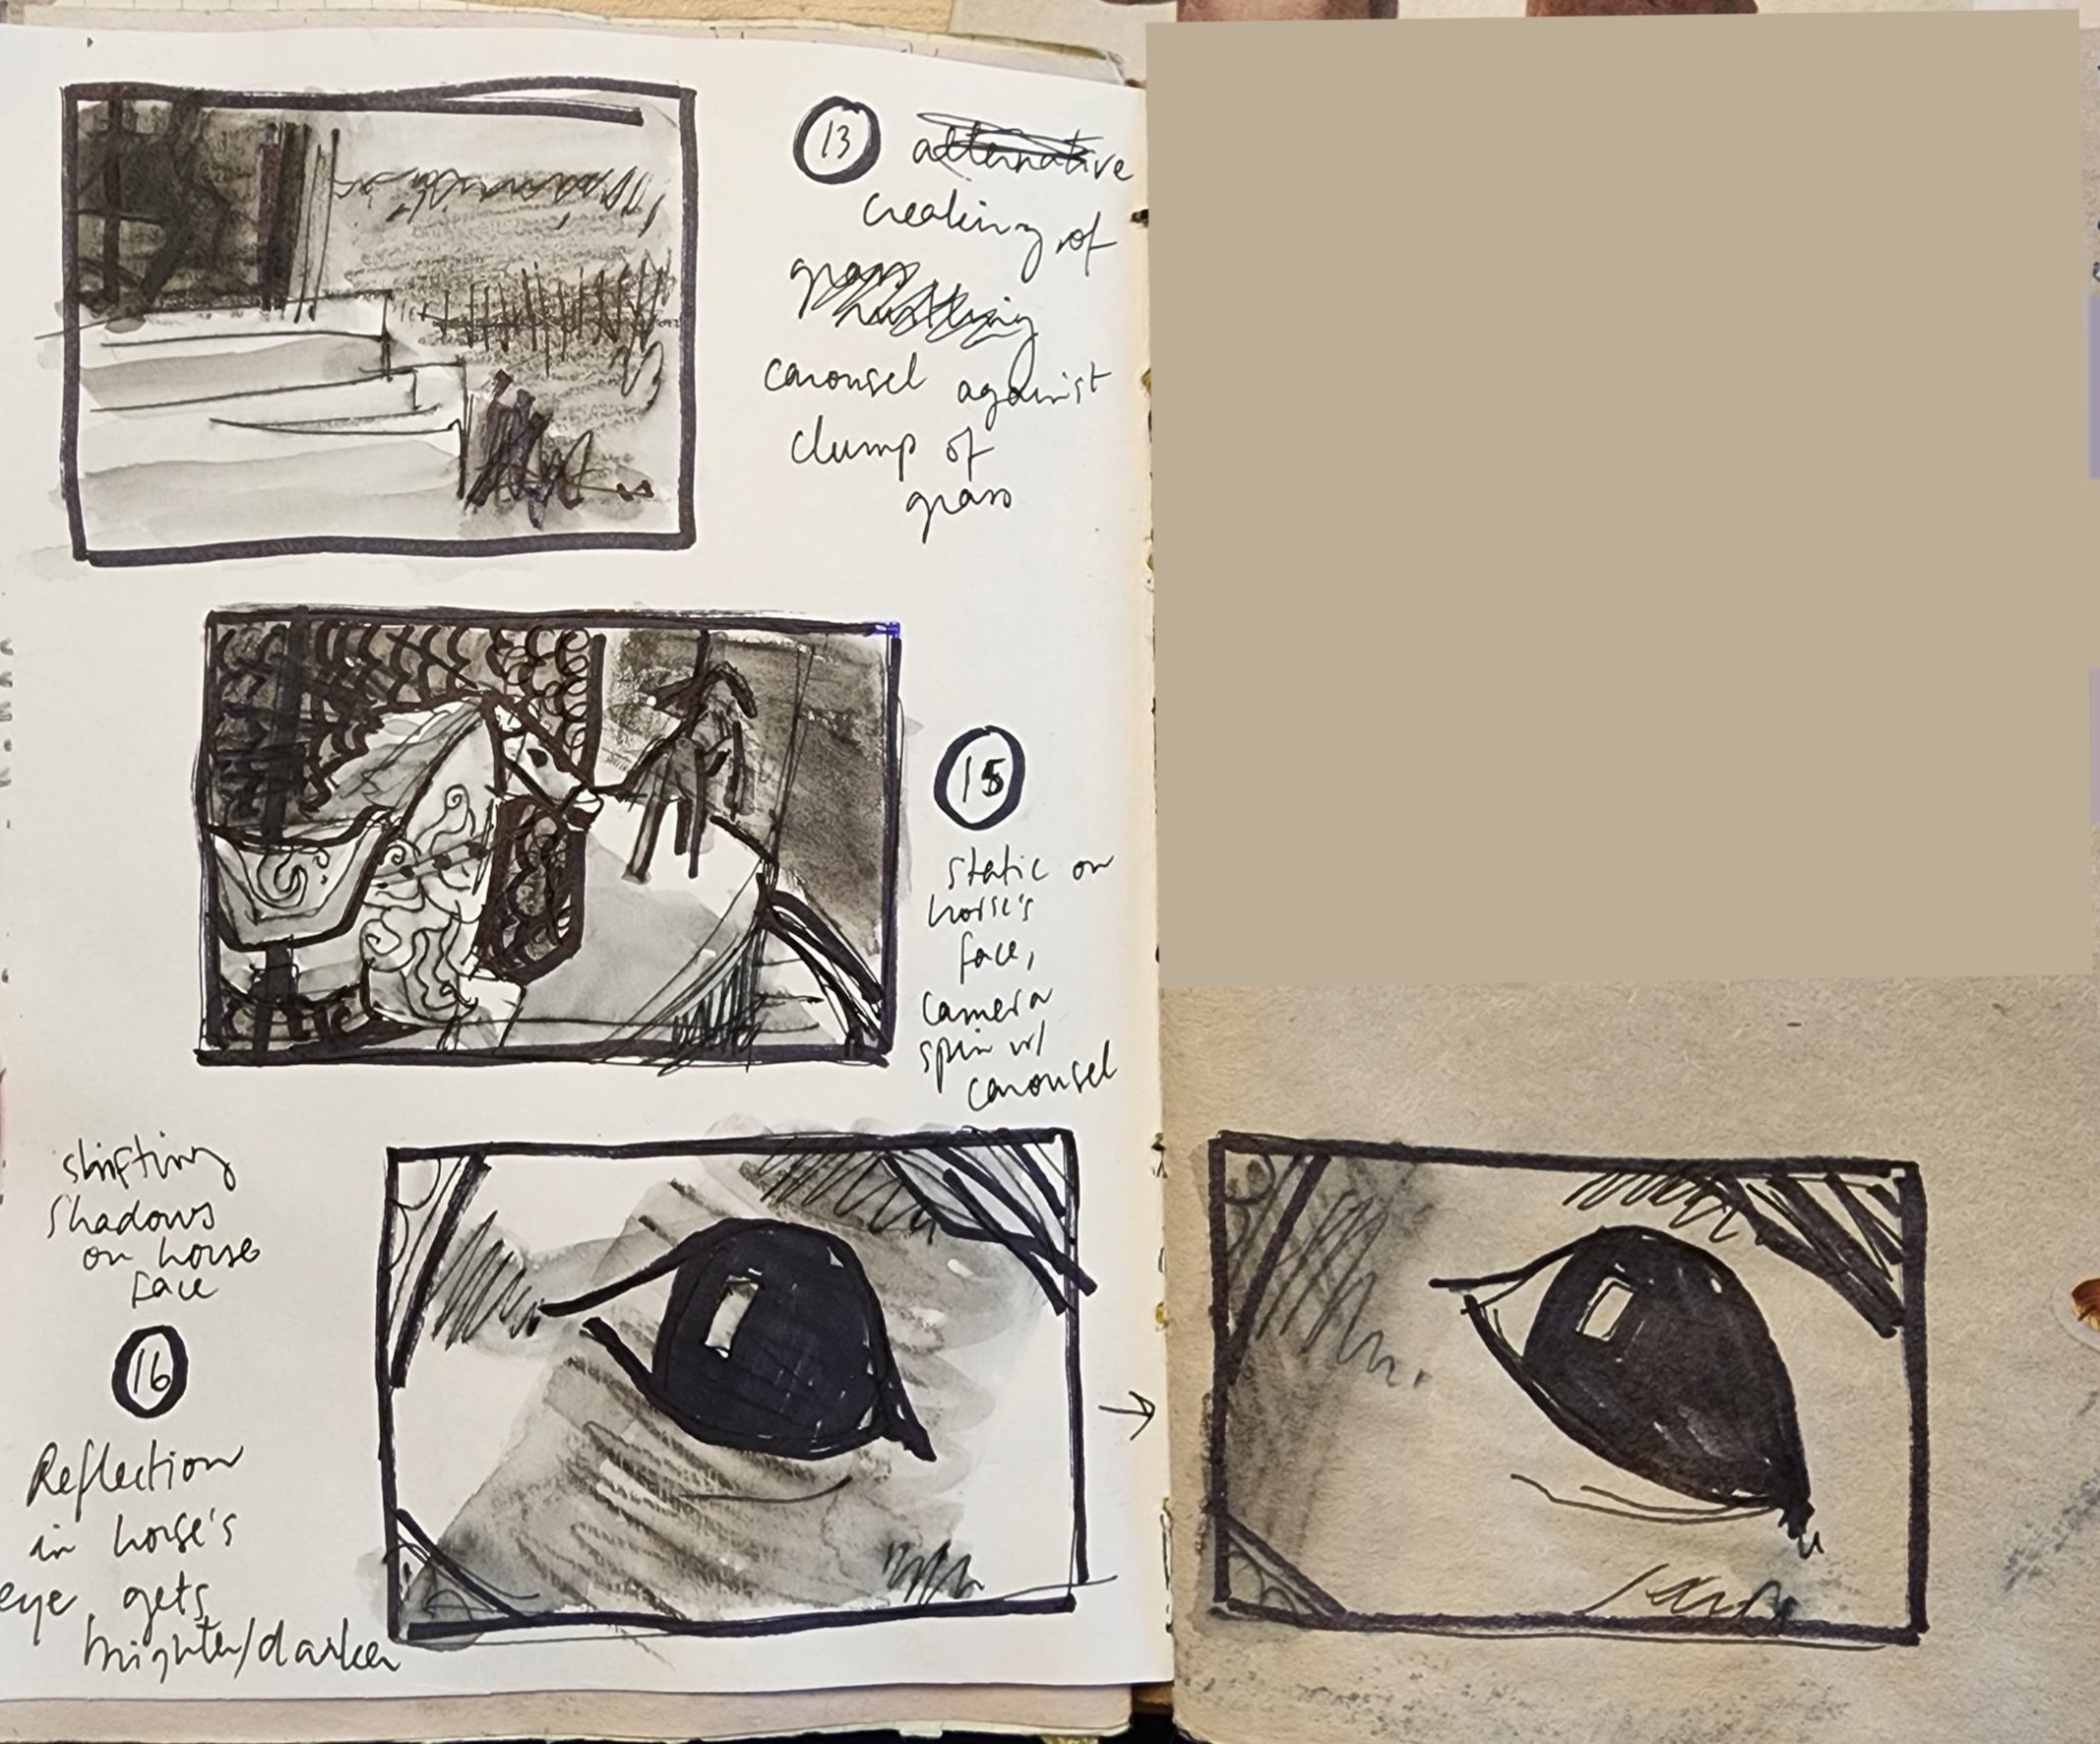 13 alternative
creaking of
grass
rustling
carousel against
clump of
grass
15
static on
horse's
face,
camera
spin w/
carousel
shifting
shadows
on horse
face
16
Reflection
in horse's
eye gets
brighter/darker